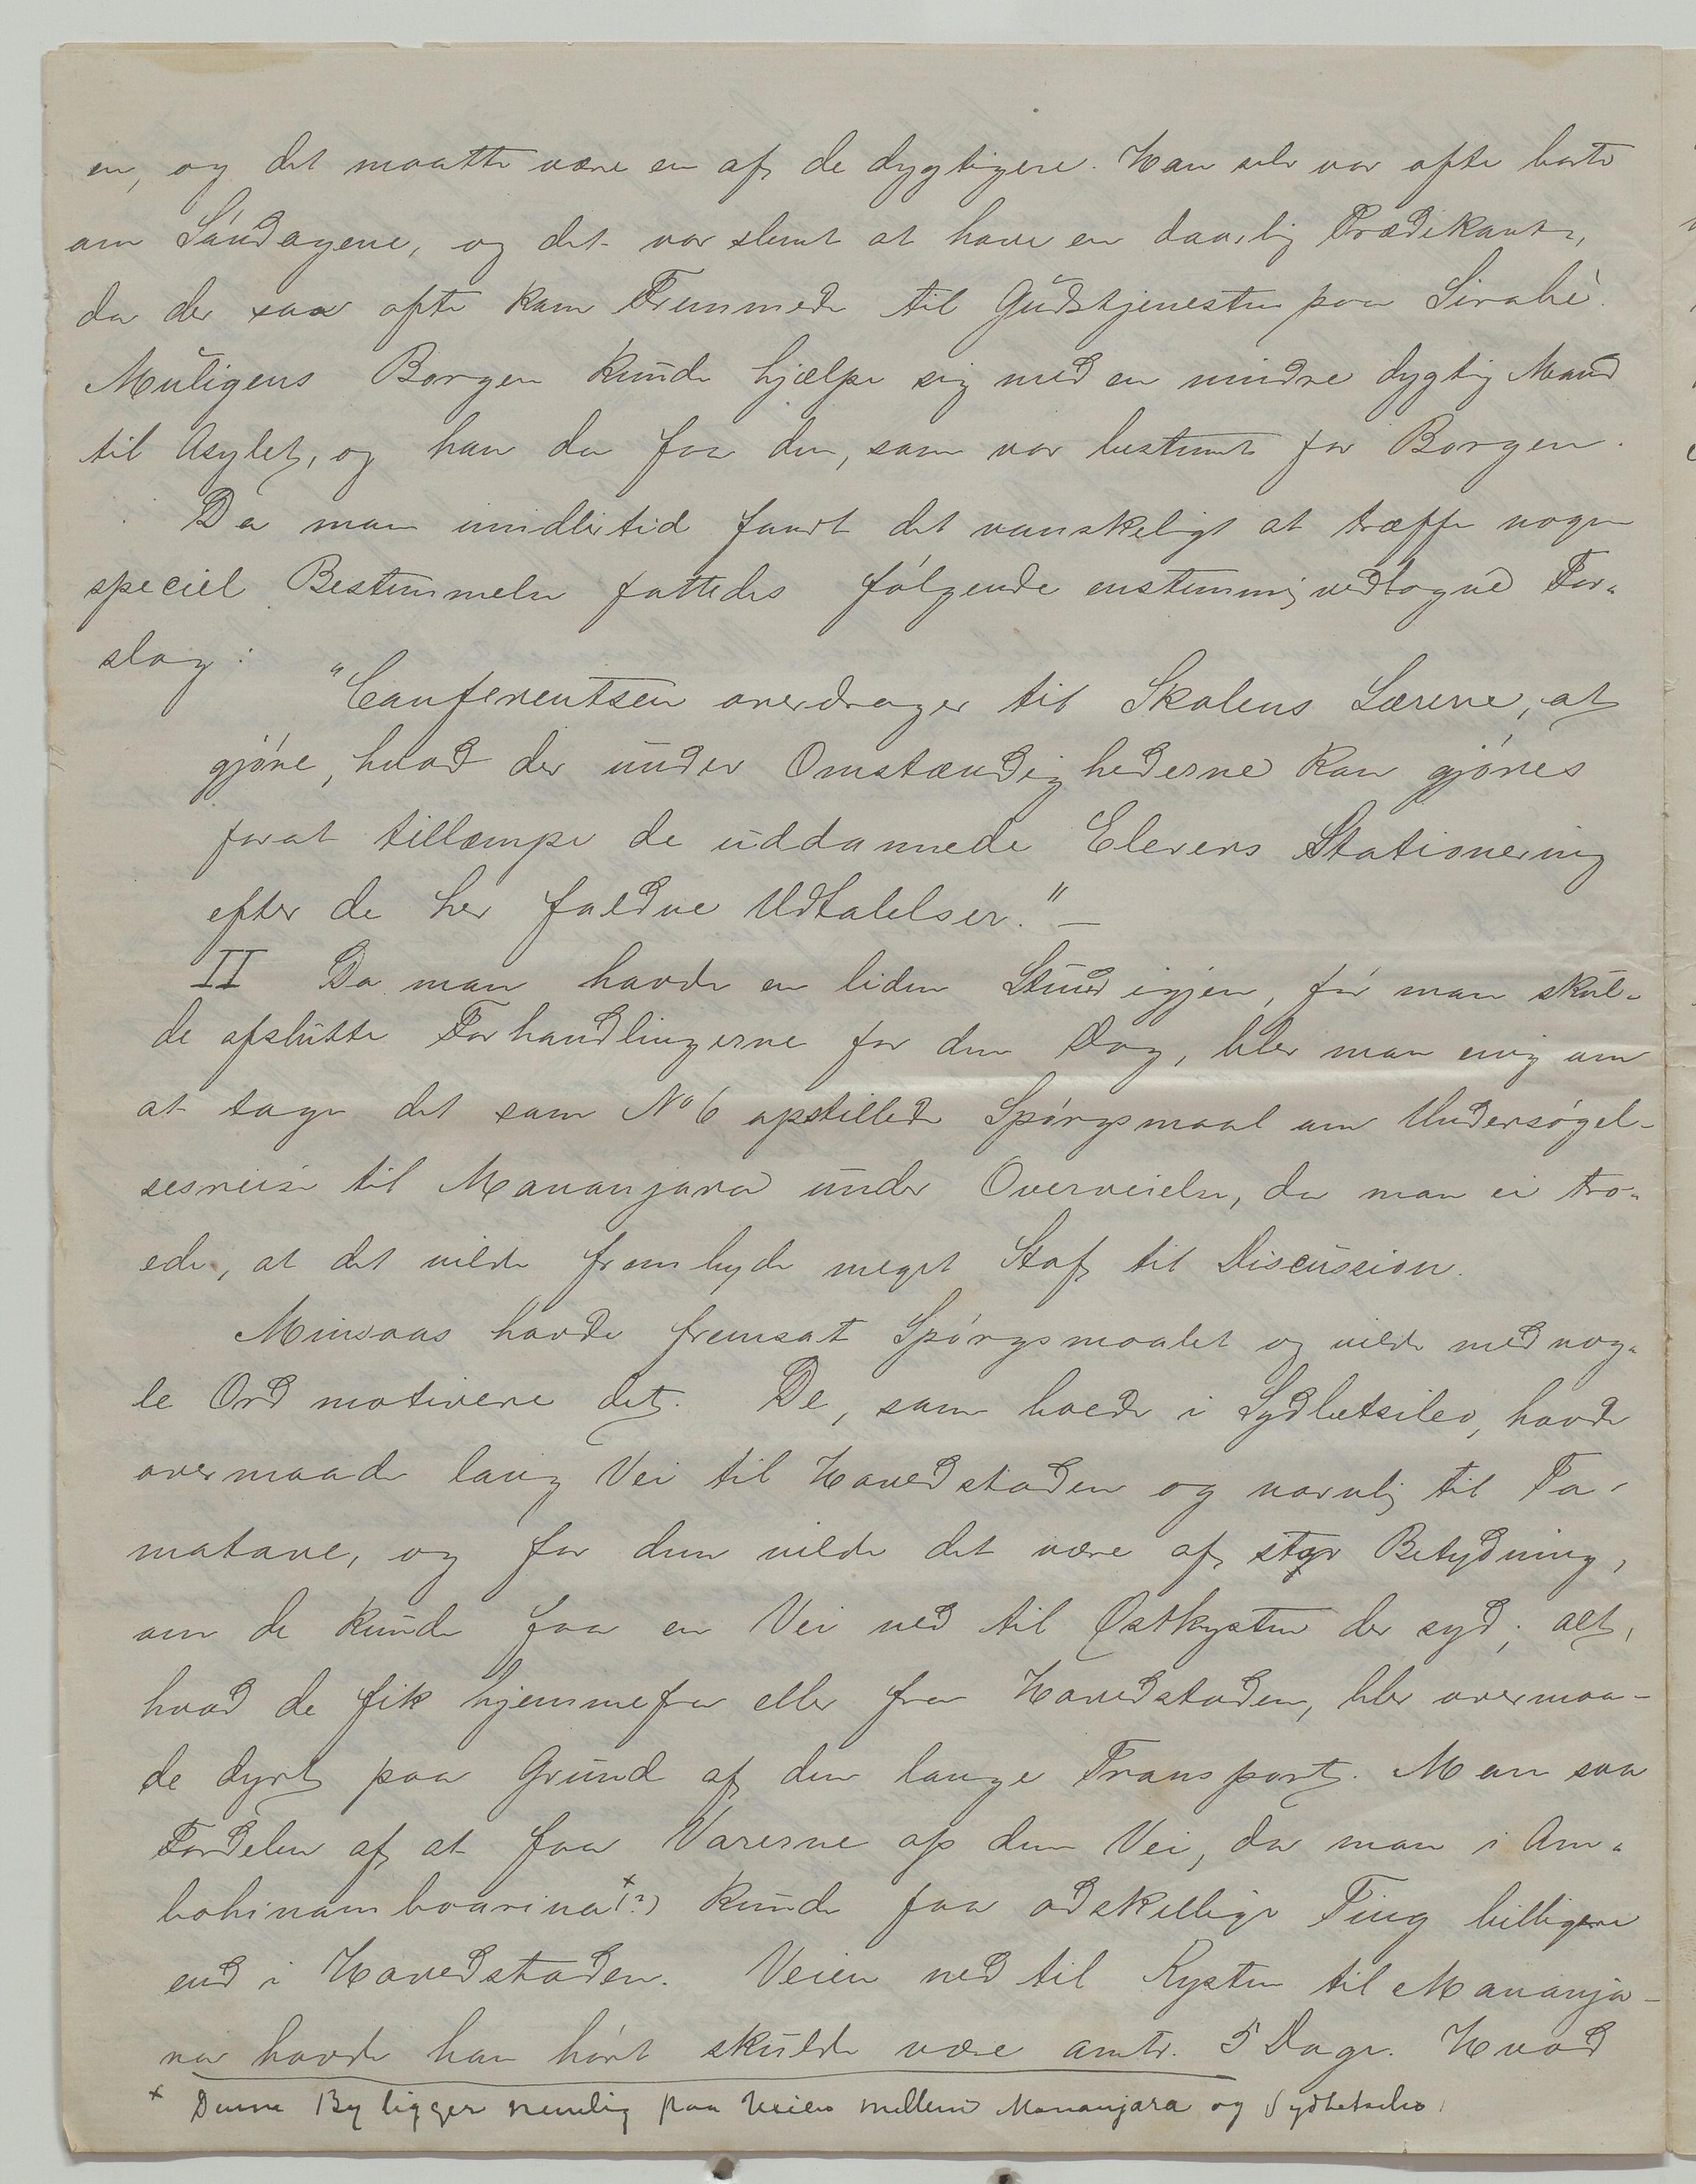 en, og det maatte være en af de dygtigere. Han selv var ofte borte
om Søndagene, og det var slemt at have en daarlig Prædikant,
da der saa ofte kom Fremmede til Gudstjenesten paa Sirabè.
Muligens Borgen kunde hjælpe sig med en mindre dygtig Mand
til Asylet, og han da faa den, som var bestemt for Borgen.
Da man imidlertid fandt det vanskeligt at træffe nogen
speciel Bestemmelse fattedes følgende enstemmig vedtagne For-
slag:
"Conferentsen overdrager til Skolens Lærere, at
gjøre, hvad der under Omstændighederne kan gjøres
forat tillæmpe de uddannede Elevers Stationering
efter de her faldne Udtalelser." —
II Da man havde en liden Stund igjen, før man skul-
de afslutte Forhandlingerne for den Dag, blev man enig om
at tage det som No 6 opstillede Spørgsmaal om Undersøgel-
sesreise til Mananjara under Overveielse, da man ei tro-
ede, at det vilde frembyde meget Stof til Discussion.
Minsaas havde fremsat Spørgsmaalet og vilde med nog-
le Ord motivere det. De, som boede i Sydbetsileo, havde
overmaade lang Vei til Hovedstaden og navnlig til Ta-
matave, og for dem vilde det være af stor Betydning,
om de kunde faa en Vei ned til Østkysten der syd; alt,
hvad de fik hjemmefra eller fra Hovedstaden, blev overmaa-
de dyrt paa Grund af den lange Transport. Man saa
Fordelen af at faa Varerne op den Vei, da man i Am-
bohinamboarina x(?) kunde faa adskillige Ting billigere
end i Hovedstaden. Veien ned til Kysten til Mananja-
ra havde han hørt skulde være omtr. 5 Dage. Hvad
x Denne By ligger nemlig paa Veien mellem Mananjara og Sydbetsileo.